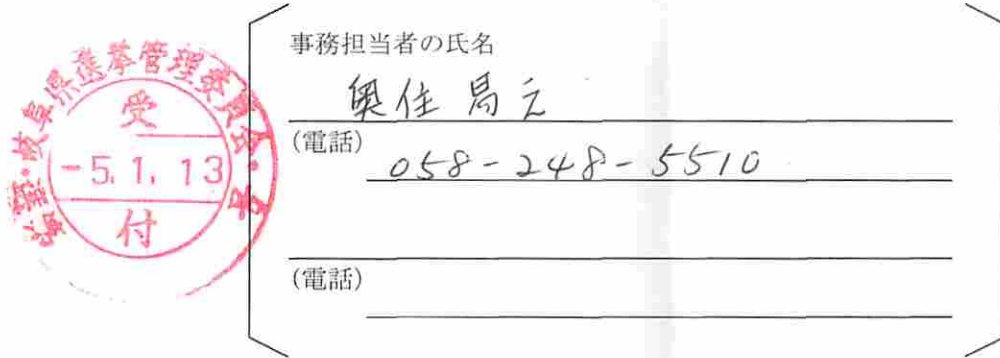 岐阜県選挙管理委員会
受
-5.1.13
付
事務担当者の氏名
奥住昌之
(電話)
058-248-5510
(電話)